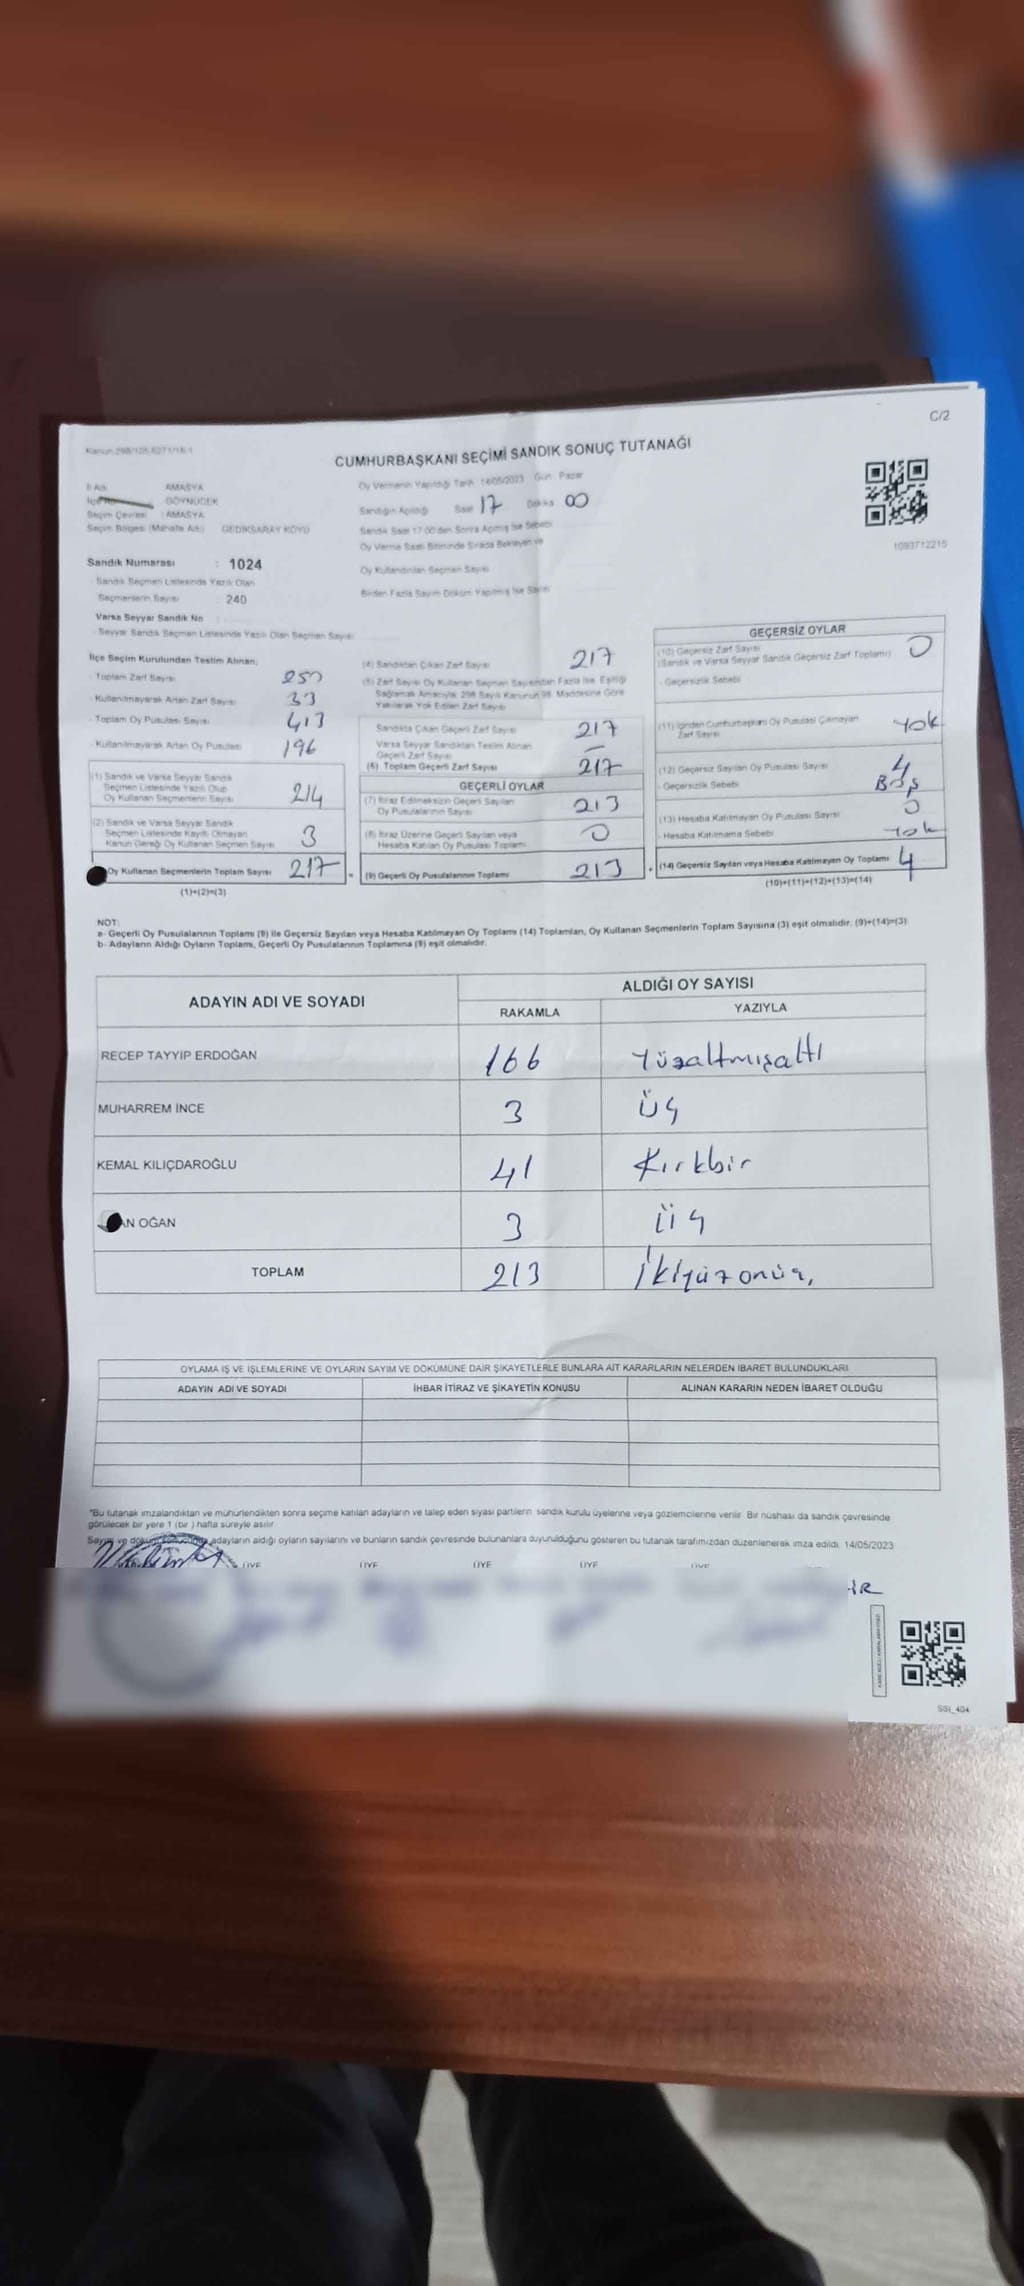 C/2
Kanun:298/105,6271/18-1
CUMHURBAŞKANI SEÇİMİ SANDIK SONUÇ TUTANAĞI
İl Adı : AMASYA
GÖYNÜCEK
Seçim Çevresi : AMASYA
Seçim Bölgesi (Mahalle Adı) : GEDİKSARAY KÖYÜ
Oy Vermenin Yapıldığı Tarih 14/05/2023 Gün: Pazar
Sandığın Açıldığı Saat 17 Dakika 00
Sandık Saat 17.00'den Sonra Açılmış İse Sebebi
Oy Verme Saati Bitiminde Sırada Bekleyen ve
Oy Kullandırılan Seçmen Sayısı
Birden Fazla Sayım Döküm Yapılmış İse Sayısı
1093712215
Sandık Numarası : 1024
- Sandık Seçmen Listesinde Yazılı Olan
Seçmenlerin Sayısı : 240
Varsa Seyyar Sandık No
- Seyyar Sandık Seçmen Listesinde Yazılı Olan Seçmen Sayısı
İlçe Seçim Kurulundan Teslim Alınan;
- Toplam Zarf Sayısı 250
- Kullanılmayarak Artan Zarf Sayısı 33
- Toplam Oy Pusulası Sayısı 413
- Kullanılmayarak Artan Oy Pusulası 196
(1) Sandık ve Varsa Seyyar Sandık
Seçmen Listesinde Yazılı Olup
Oy Kullanan Seçmenlerin Sayısı 214
(2) Sandık ve Varsa Seyyar Sandık
Seçmen Listesinde Kayıtlı Olmayan
Kanun Gereği Oy Kullanan Seçmen Sayısı 3
Oy Kullanan Seçmenlerin Toplam Sayısı 217 =
(1)+(2)=(3)
(4) Sandıktan Çıkan Zarf Sayısı 217
(5) Zarf Sayısı Oy Kullanan Seçmen Sayısından Fazla İse, Eşitliği
Sağlamak Amacıyla; 298 Sayılı Kanunun 98. Maddesine Göre
Yakılarak Yok Edilen Zarf Sayısı
Sandıkta Çıkan Geçerli Zarf Sayısı 217
Varsa Seyyar Sandıktan Teslim Alınan
Geçerli Zarf Sayısı —
(6) Toplam Geçerli Zarf Sayısı 217
GEÇERLİ OYLAR
(7) İtiraz Edilmeksizin Geçerli Sayılan
Oy Pusulalarının Sayısı 213
(8) İtiraz Üzerine Geçerli Sayılan veya
Hesaba Katılan Oy Pusulası Toplamı 0
(9) Geçerli Oy Pusulalarının Toplamı 213 +
GEÇERSİZ OYLAR
(10) Geçersiz Zarf Sayısı 0
(Sandık ve Varsa Seyyar Sandık Geçersiz Zarf Toplamı)
- Geçersizlik Sebebi
(11) İçinden Cumhurbaşkanı Oy Pusulası Çıkmayan
Zarf Sayısı Yok
(12) Geçersiz Sayılan Oy Pusulası Sayısı 4
- Geçersizlik Sebebi Boş
(13) Hesaba Katılmayan Oy Pusulası Sayısı 0
- Hesaba Katılmama Sebebi Yok
(14) Geçersiz Sayılan veya Hesaba Katılmayan Oy Toplamı 4
(10)+(11)+(12)+(13)=(14)
NOT:
a- Geçerli Oy Pusulalarının Toplamı (9) ile Geçersiz Sayılan veya Hesaba Katılmayan Oy Toplamı (14) Toplamları, Oy Kullanan Seçmenlerin Toplam Sayısına (3) eşit olmalıdır. (9)+(14)=(3)
b- Adayların Aldığı Oyların Toplamı, Geçerli Oy Pusulalarının Toplamına (9) eşit olmalıdır.
ADAYIN ADI VE SOYADI
ALDIĞI OY SAYISI
RAKAMLA YAZIYLA
RECEP TAYYİP ERDOĞAN 166 Yüzaltmışaltı
MUHARREM İNCE 3 Üç
KEMAL KILIÇDAROĞLU 41 Kırkbir
AN OĞAN 3 Üç
TOPLAM 213 İkiyüzonüç
OYLAMA İŞ VE İŞLEMLERİNE VE OYLARIN SAYIM VE DÖKÜMÜNE DAİR ŞİKAYETLERLE BUNLARA AİT KARARLARIN NELERDEN İBARET BULUNDUKLARI
ADAYIN ADI VE SOYADI İHBAR İTİRAZ VE ŞİKAYETİN KONUSU ALINAN KARARIN NEDEN İBARET OLDUĞU
*Bu tutanak imzalandıktan ve mühürlendikten sonra seçime katılan adayların ve talep eden siyasi partilerin sandık kurulu üyelerine veya gözlemcilerine verilir. Bir nüshası da sandık çevresinde
görülecek bir yere 1 (bir ) hafta süreyle asılır.
Sayım ve döküm adayların aldığı oyların sayılarını ve bunların sandık çevresinde bulunanlara duyurulduğunu gösteren bu tutanak tarafımızdan düzenlenerek imza edildi. 14/05/2023
ÜYE ÜYE ÜYE ÜYE ÜYE
SSI_404